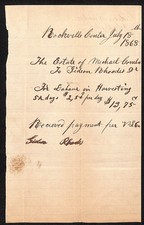 Rockville Center July 15th
1868
The Estate of Michael Combs
To Gideon Rhoades Dr
For Labour in Harvesting
5 1/2 days $2,50 per day $13,75
Received payment for
Gideon Rhoads